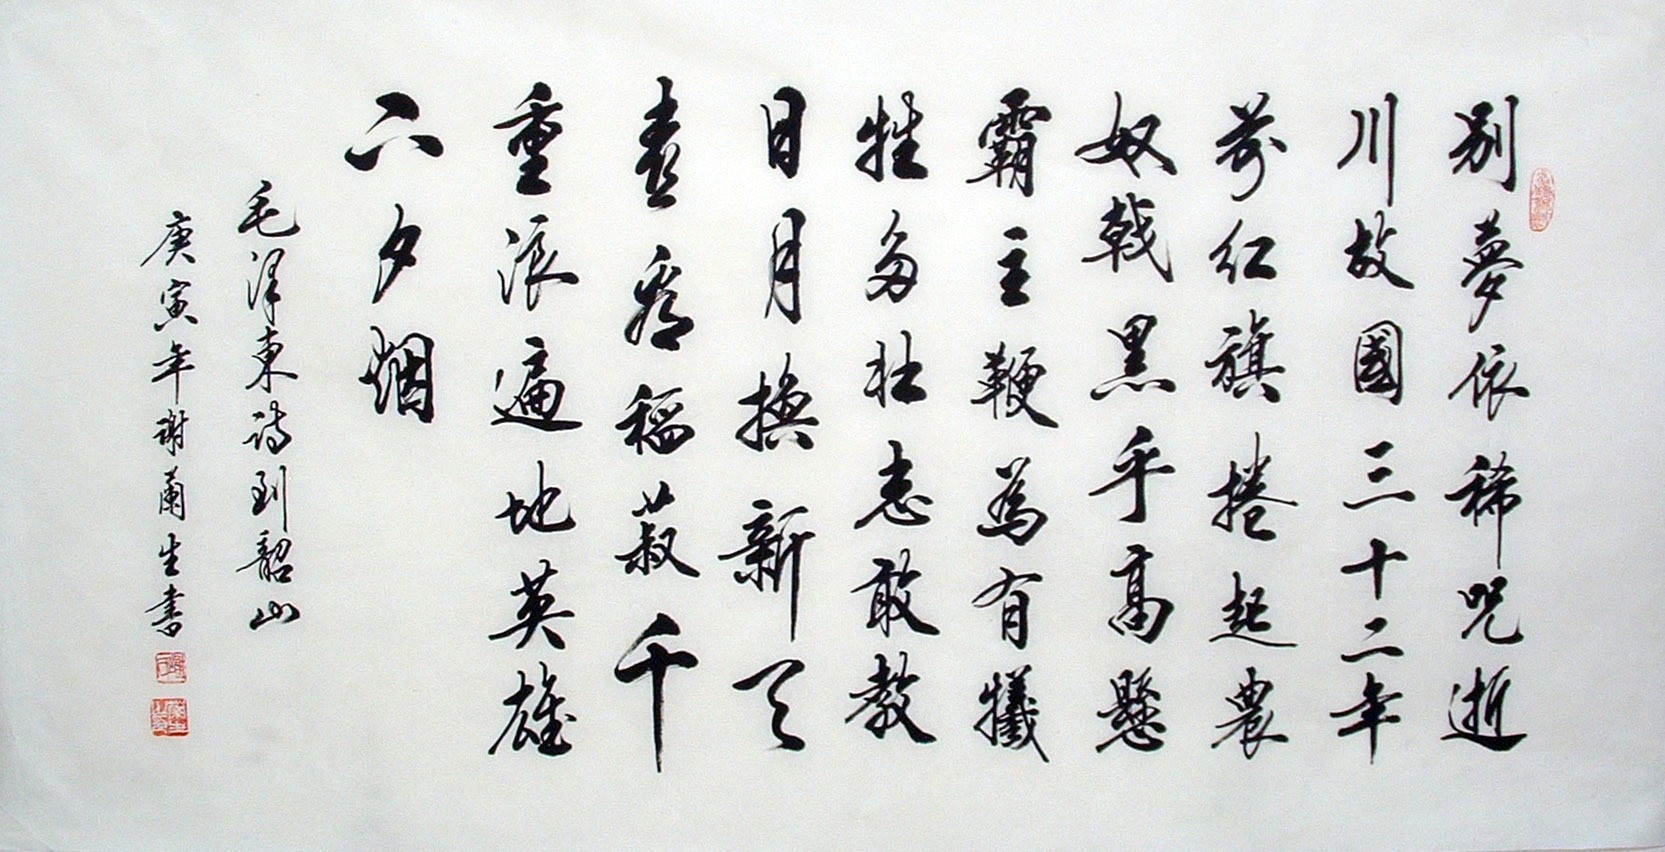 别夢依稀咒逝
川故國三十二年
前紅旗捲起農
奴戟黑手高懸
霸主鞭為有犧
牲多壯志敢教
日月換新天
喜看稻菽千
重浪遍地英雄
下夕烟
毛澤東詩到韶山
庚寅年謝蘭生書